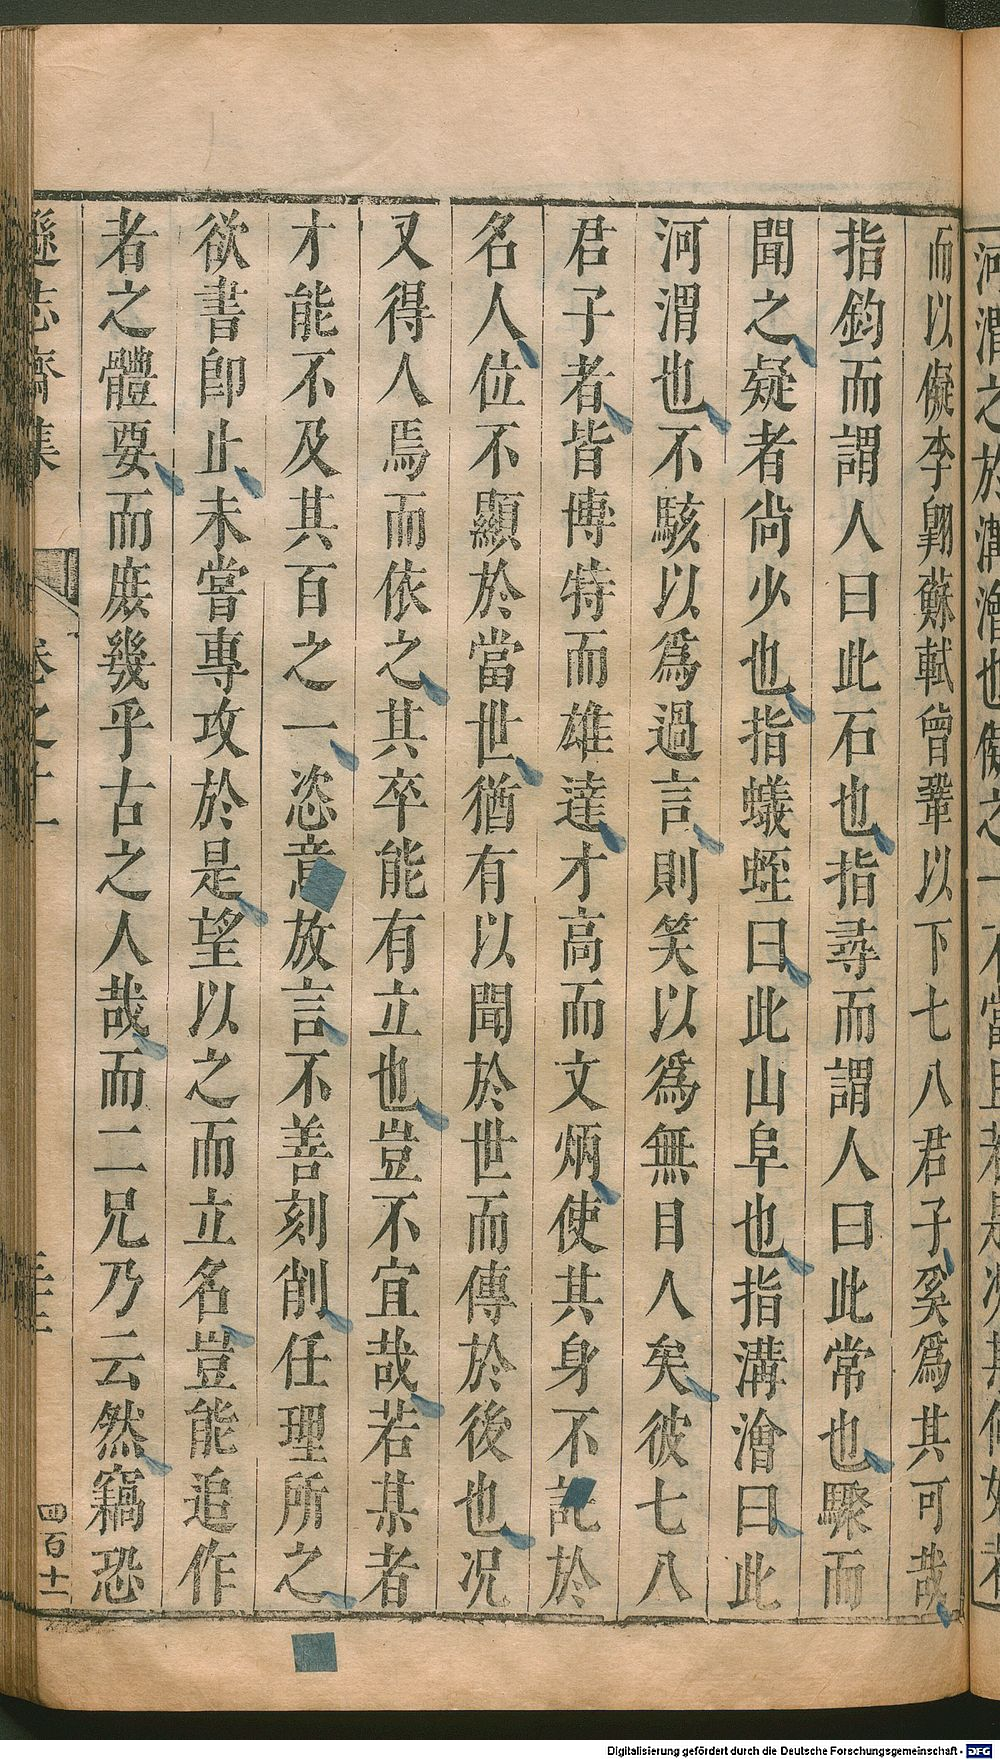 河渭之於溝澮也儗之
而以儗李翺蘇軾曾鞏以下七八君子奚爲其可哉
指鈞而謂人曰此石也指尋而謂人曰此常也驟而
聞之疑者尙少也指蟻蛭曰此山阜也指溝澮曰此
河渭也不駭以爲過言則笑以爲無目人矣彼七八
君子者皆傳特而雄達才高而文炳使其身不託於
名人位不顯於當世猶有以聞於世而傳於後也况
又得人焉而依之其卒能有立也豈不宜哉若某者
才能不及其百之一恣意放言不善刻削任理所之
欲書卽止未嘗專攻於是望以之而立名豈能追作
者之體要而庶幾乎古之人哉而二兄乃云然竊恐
遜志齋集 卷之十一
四百十一
Digitalisierung gefördert durch die Deutsche Forschungsgemeinschaft - DFG